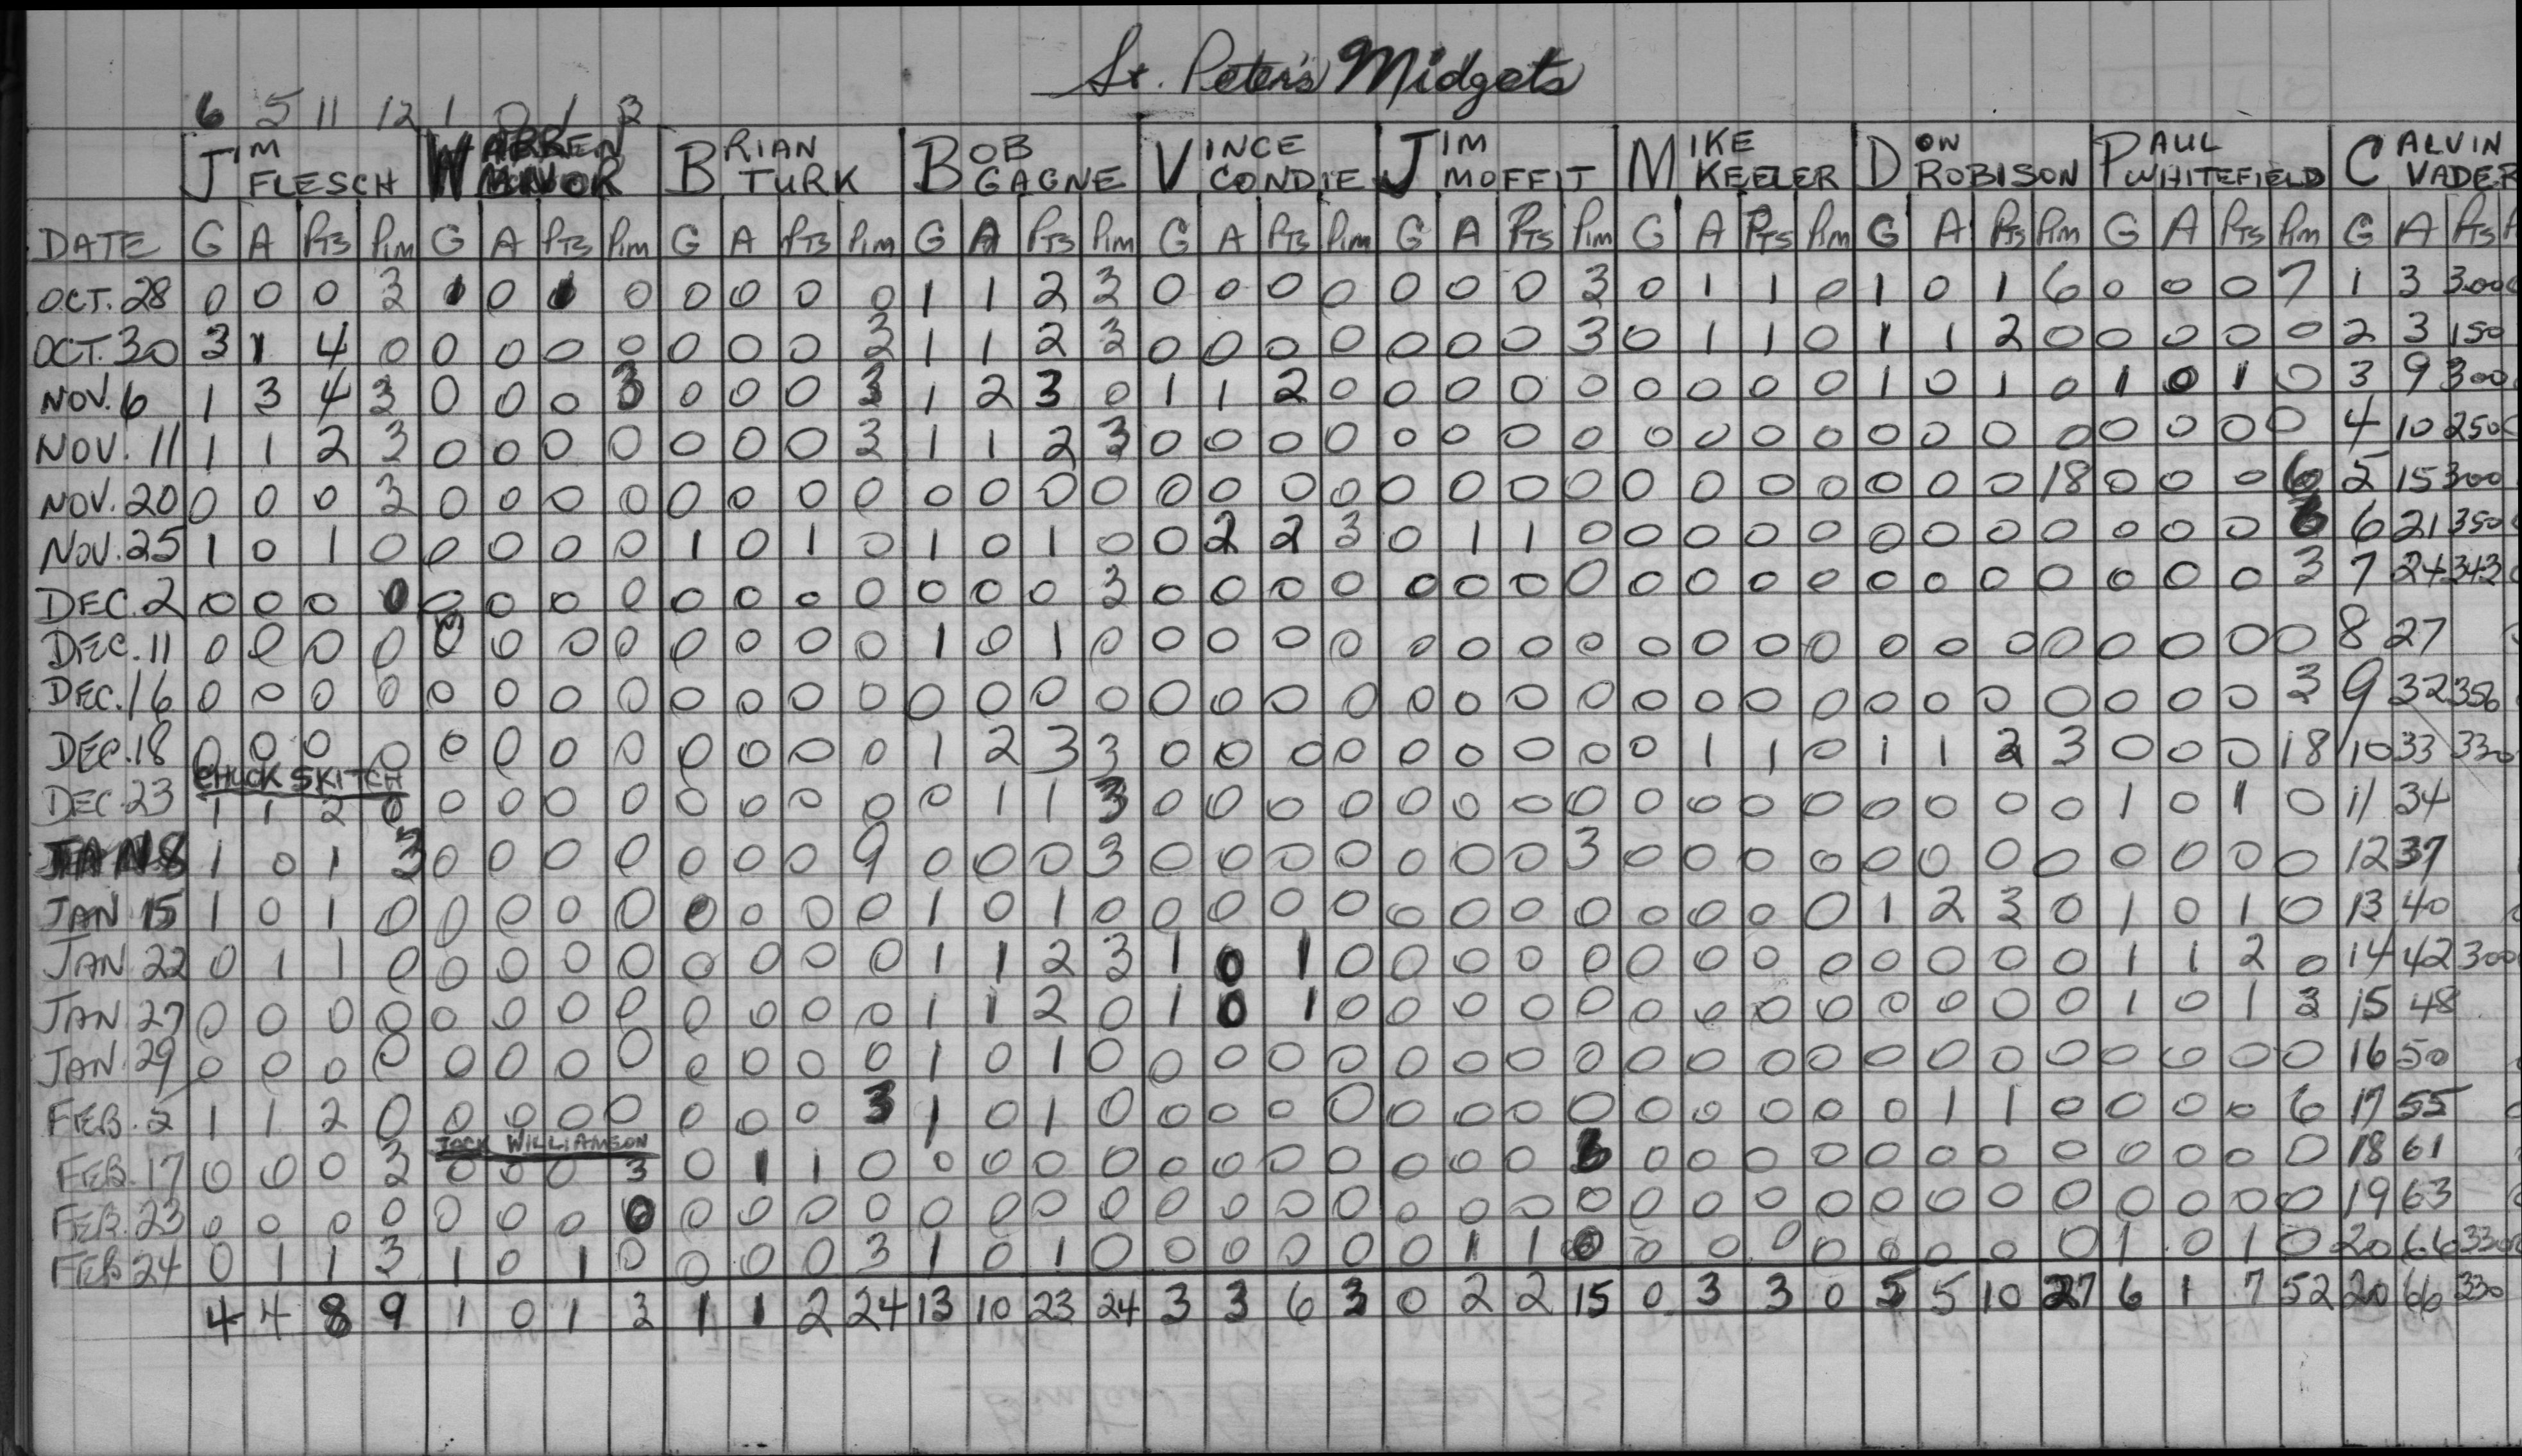 St. Peter's Midgets
6 5 11 12 1 0 1 3
JIM FLESCH WARREN MINOR BRIAN TURK BOB GAGNE VINCE CONDIE JIM MOFFIT MIKE KEELER DON ROBISON PAUL WHITEFIELD CALVIN VADER
DATE G A PTS PIM G A PTS PIM G A PTS PIM G A PTS PIM G A PTS PIM G A PTS PIM G A PTS PIM G A PTS PIM G A PTS PIM G A PTS P
OCT. 28 0 0 0 3 1 0 1 0 0 0 0 0 1 1 2 3 0 0 0 0 0 0 0 3 0 1 1 0 1 0 1 6 0 0 0 7 1 3 300
OCT. 30 3 1 4 0 0 0 0 0 0 0 0 3 1 1 2 3 0 0 0 0 0 0 0 3 0 1 1 0 1 1 2 0 0 0 0 0 2 3 150
NOV. 6 1 3 4 3 0 0 0 3 0 0 0 3 1 2 3 0 1 1 2 0 0 0 0 0 0 0 0 0 1 0 1 0 1 0 1 0 3 9 300
NOV. 11 1 1 2 3 0 0 0 0 0 0 0 3 1 1 2 3 0 0 0 0 0 0 0 0 0 0 0 0 0 0 0 0 0 0 0 0 4 10 250
NOV. 20 0 0 0 3 0 0 0 0 0 0 0 0 0 0 0 0 0 0 0 0 0 0 0 0 0 0 0 0 0 0 0 18 0 0 0 6 5 15 300
NOV. 25 1 0 1 0 0 0 0 0 1 0 1 0 1 0 1 0 0 2 2 3 0 1 1 0 0 0 0 0 0 0 0 0 0 0 0 6 21 350
DEC. 2 0 0 0 0 0 0 0 0 0 0 0 0 0 0 0 3 0 0 0 0 0 0 0 0 0 0 0 0 0 0 0 0 0 0 0 3 7 24 343
DEC. 11 0 0 0 0 0 0 0 0 0 0 0 0 1 0 1 0 0 0 0 0 0 0 0 0 0 0 0 0 0 0 0 0 0 0 0 0 8 27
DEC. 16 0 0 0 0 0 0 0 0 0 0 0 0 0 0 0 0 0 0 0 0 0 0 0 0 0 0 0 0 0 0 0 0 0 0 0 3 9 32 356
DEC. 18 0 0 0 0 0 0 0 0 0 0 0 0 1 2 3 3 0 0 0 0 0 0 0 0 0 1 1 0 1 1 2 3 0 0 0 18 10 33 330
CHUCK SKITCH
DEC. 23 1 1 2 0 0 0 0 0 0 0 0 0 0 1 1 3 0 0 0 0 0 0 0 0 0 0 0 0 0 0 0 0 1 0 1 0 11 34
JAN 8 1 0 1 3 0 0 0 0 0 0 0 9 0 0 0 3 0 0 0 0 0 0 0 3 0 0 0 0 0 0 0 0 0 0 0 0 12 37
JAN 15 1 0 1 0 0 0 0 0 0 0 0 0 1 0 1 0 0 0 0 0 0 0 0 0 0 0 0 0 1 2 3 0 1 0 1 0 13 40
JAN 22 0 1 1 0 0 0 0 0 0 0 0 0 1 1 2 3 1 0 1 0 0 0 0 0 0 0 0 0 0 0 0 0 1 1 2 0 14 42 300
JAN 27 0 0 0 0 0 0 0 0 0 0 0 0 1 1 2 0 1 0 1 0 0 0 0 0 0 0 0 0 0 0 0 0 1 0 1 3 15 48
JAN. 29 0 0 0 0 0 0 0 0 0 0 0 0 1 0 1 0 0 0 0 0 0 0 0 0 0 0 0 0 0 0 0 0 0 0 0 0 16 50
FEB. 5 1 1 2 0 0 0 0 0 0 0 0 3 1 0 1 0 0 0 0 0 0 0 0 0 0 0 0 0 0 1 1 0 0 0 0 6 17 55
JOCK WILLIAMSON
FEB. 17 0 0 0 3 0 0 0 3 0 1 1 0 0 0 0 0 0 0 0 0 0 0 0 0 0 0 0 0 0 0 0 0 0 0 0 18 61
FEB. 23 0 0 0 0 0 0 0 0 0 0 0 0 0 0 0 0 0 0 0 0 0 0 0 0 0 0 0 0 0 0 0 0 0 0 0 0 19 63
FEB 24 0 1 1 3 1 0 1 0 0 0 0 3 1 0 1 0 0 0 0 0 0 1 1 0 0 0 0 0 0 0 0 0 1 0 1 0 20 66 330
4 4 8 9 1 0 1 3 1 1 2 24 13 10 23 24 3 3 6 3 0 2 2 15 0 3 3 0 5 5 10 27 6 1 7 52 20 66 330